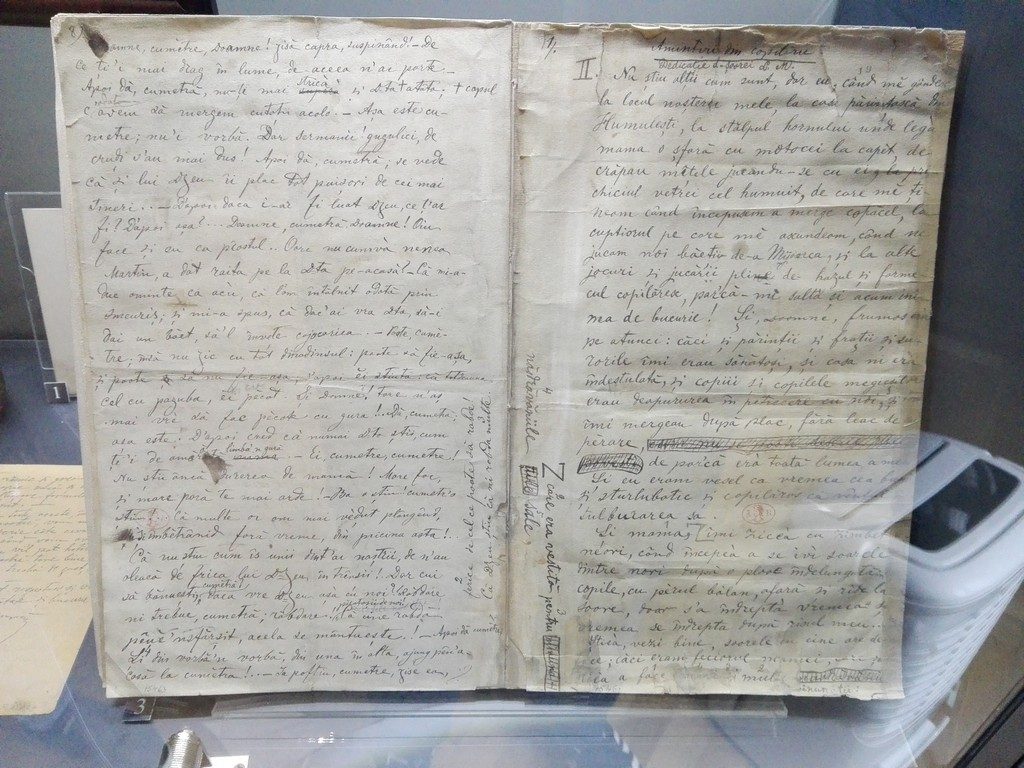 8)
Doamne, cumetre, Doamne! zisă capra, suspinând! – De
ce ți'i mai drag în lume, de aceea n'ai parte –
Apoi dă, cumetră, nu-te mai strică și Dta atâta; + capul
c'avem să mergem cu toții acolo. – Așa este cu-
metre; nu'i vorbă. Dar sermanii gugulici, de
cruzi s'au mai dus! Apoi dă, cumetră; se vede
că și lui Dzeu îi plac tot puișori de cei mai
tineri... – D'apoi dacă i-ar fi luat Dzeu, ce l'ar
fi? D'apoi așa!... Doamne, cumetră, Doamne! Oiu
face și eu ca prostul.. Oare nu cumva nenea
Martin, a dat raita pe la Dta pe-acasă? – Că mi-a-
duc aminte ca acu, că l'am întâlnit odată prin
smeuriș; și mi-a spus, că dac'ai vra Dta, să-i
dai un băet, să'l învețe cojocăria. – Poate, cume-
tre; însă nu zic cu tot dinadinsul: poate să fie-așa,
și poate să nu fie așa,
cel cu paguba, ei păcat Și Doamne! tare n'aș
mai vré să fac păcate cu gura! – Dă, cumetră:
așa este. – D'apoi cred că numai Dta știi, cum
ți'i de
limbă'n gură
– Ei, cumetre, cumetre!
Nu știi Dta durerea de mamă! Mare foc,
și mare pară te mai arde! – Ba o știu cumetră
Că multe or om mai vedut plângând,
îmbetrănind fără vreme, din pricina asta!...
Că nu știu cum îs unii dint'ai noștrii, de n'au
oleacă de frica lui Dzeu, întrînșii! Dar cui
cumetră!
să bănuești, dacă vre Dzeu așa cu noi! Răbdare
ni trebue, cumetră; răbdare
pănă însfîrșit, acela se mântuește! – Apoi dă cumetre
Și din vorbă'n vorbă, din una în alta, ajung păn'a-
casă la cumetra!... – Ia poftim, cumetre, zise ea,
3
1
1).
Amintiri din copilărie
Dedicație d-șoarei L. M.
II.
Nu știu alții cum sunt, dar eu, când mă gândesc
la locul nașterei mele, la casa părintească din
Humulești, la stâlpul hornului unde lega
mama o șfară cu motocei la capet, de
crăpau mâțele jucându-se cu ei, la pri-
chiciul vetrei cel humuit, de care mă ți-
neam când începusem a merge copăcel, la
cuptiorul pe care mă ascundeam, când ne
jucam noi băeții de-a Mijoarca, și la alte
jocuri și jucării pline de hazul și farme-
cul copilăresc, parcă-mi saltă și acum ini-
ma de bucurie! Și, Doamne, frumos era
pe atunci: căci și părinții și frații și su-
rorile îmi erau sănătoși, și casa ni era
indestulată, și copiii și copilele megieșilor
erau deapururea în petrecere cu noi, și
îmi mergeau după plac, fără leac de su-
părare,
de parcă era toată lumea a mea!
Și eu eram vesel ca vremea cea bună
și șturlubatic și copilăros ca vântul în
tulburarea sa.
Și mama, Z îmi zicea cu zimbet
neori, când începea a se ivi soarele
între nori după o ploae îndelungată:
copile, cu părul bălan, afară și rîde la
soare, doar s'a îndrepta vremea și
vremea se îndrepta după rîsul meu...
Știa, vezi bine, soarele cu cine are de
face; căci eram feciorul mamei,
știea a face
Z care era vestită pentru
năsdrăvăniile sale.